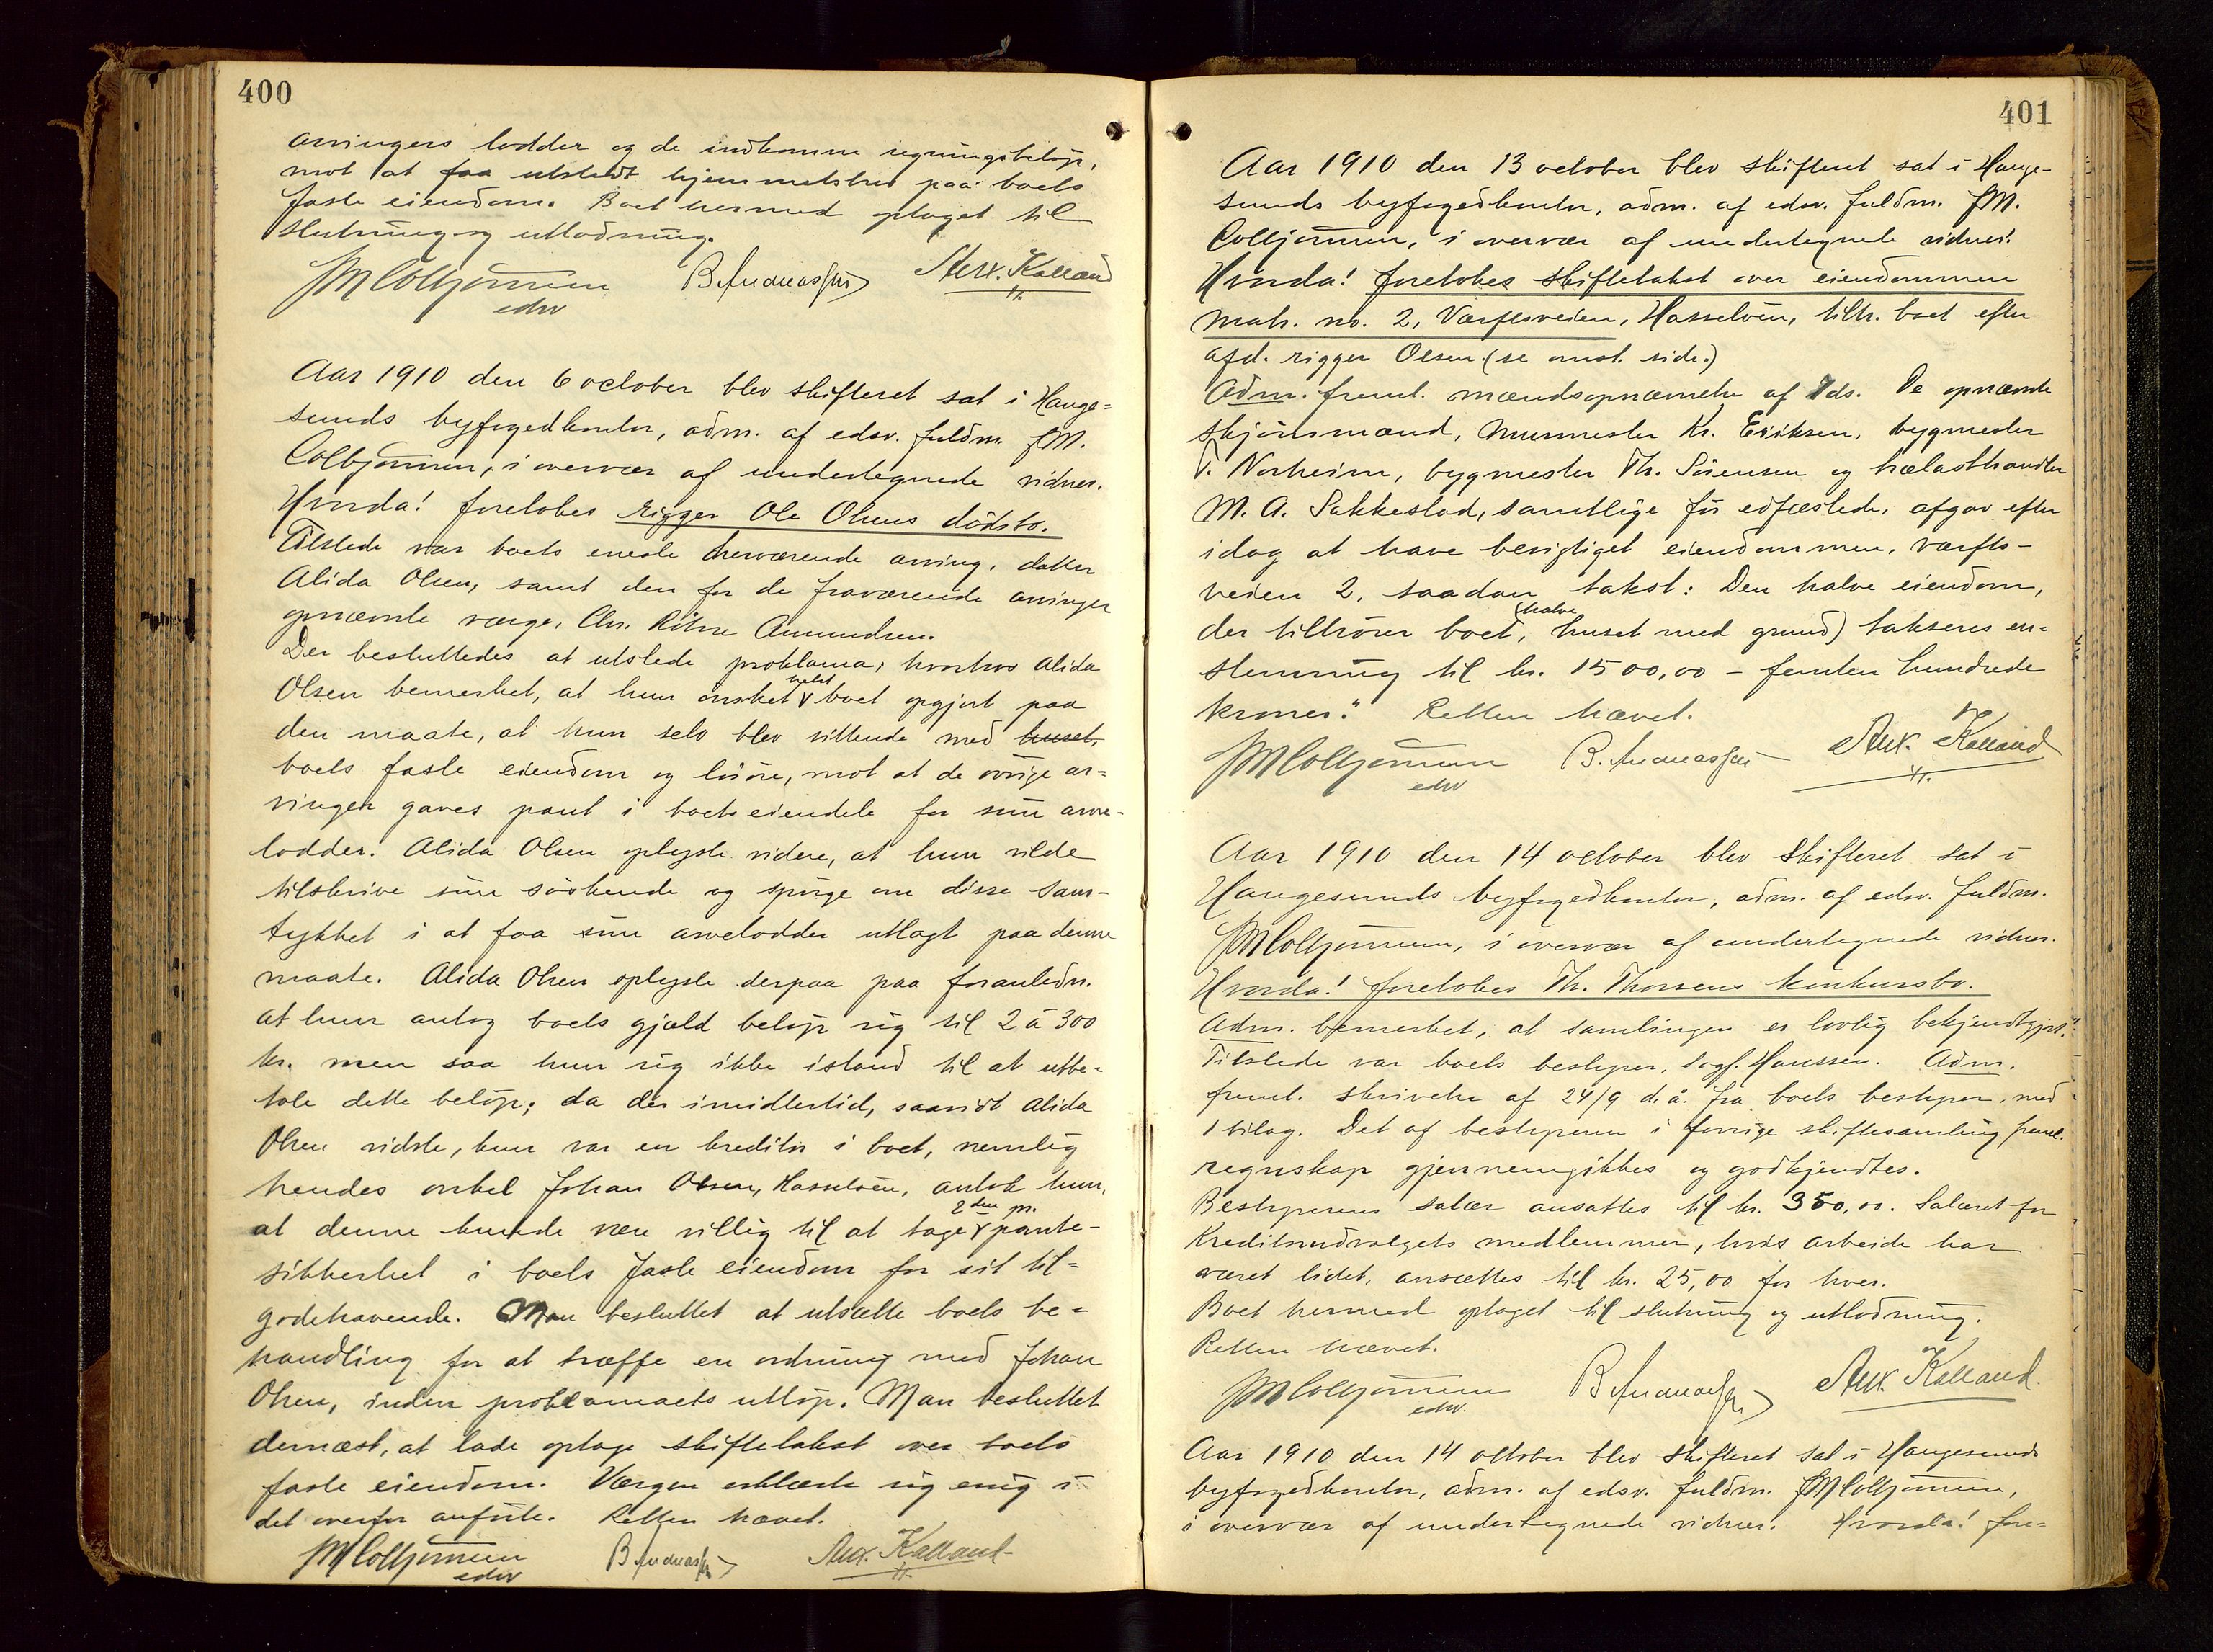 400
arvingers lodder og de indkomne regningsbeløp,
mot at faa utstedt hjemmelsbrev paa boets
faste eiendom. Boet hermed optaget til
slutning og utlodning.
JM Colbjørnsen B. Andreassen Alex. Kalland
edsv
Aar 1910 den 6 october blev skifteret sat i Hauge=
sunds byfogedkontor, adm. af edsv. fuldm. JM.
Colbjørnsen, i overvær af undertegnede vidner.
Hvorda! foretokes rigger Ole Olsens dødsbo.
Tilstede var boets eneste herværende arving, datter
Alida Olsen, samt den for de fraværende arvinger
opnævnte værge, Chr. Amundsen.
Der besluttedes at utstede proklama, hvorhos Alida
Olsen bemerket, at hun ønsket helst boet opgjort paa
den maate, at hun selv blev sittende med huset,
boets faste eiendom og løsøre, mot at de øvrige ar=
vinger gaves pant i boets eiendele for sine arve-
lodder. Alida Olsen oplyste videre, at hun vilde
tilskrive sine søskende og spørge om disse sam-
tykket i at faa sine arvelodder utlagt paa denne
maate. Alida Olsen oplyste derpaa paa foranledn.
at hun antog boets gjæld beløp sig til 2 à 300
kr. men saa hun sig ikke istand til at utbe-
tale dette beløp; da der imidlertid, saavidt Alida
Olsen vidste, kun var en kreditor i boet, nemlig
hendes onkel Johan Olsen, Hasseløen, antok hun,
at denne kunde være villig til at tage 2den pr. pante-
sikkerhet i boets faste eiendom for sit til-
godehavende. Man besluttet at utsætte boets be-
handling for at træffe en ordning med Johan
Olsen, inden proklamaets utløp. Man besluttet
dernæst, at lade optage skiftetakst over boets
faste eiendom. Værgen erklærte sig enig i
det ovenfor anførte. Retten hævet.
JM Colbjørnsen B Andreassen Alex. Kalland
edsv
401
Aar 1910 den 13 october blev skifteret sat i Hauge-
sunds byfogedkontor, adm. af edsv. fuldm. JM.
Colbjørnsen, i overvær af undertegnede vidner.
Hvorda! foretokes skiftetakst over eiendommen
matr. no. 2, Værftsveien, Hasseløen, tilh. boet efter
afd. rigger Olsen. (se omst. side.)
Adm. freml. mændsopnævnelse af 7 ds. De opnævnte
skjønsmænd, murmester Kr. Eriksen, bygmester
T. Norheim, bygmester Th. Sørensen og trælasthandler
M. A. Sakkestad, samtlige før edfæstede, afgav efter
idag at have besigtiget eiendommen, værfts-
veien 2, saadan takst: Den halve eiendom,
der tilhører boet, (halve huset med grund) takseres en-
stemmig til kr. 1500,00 – femten hundrede
kroner." Retten hævet.
JM Colbjørnsen B. Andreassen Alex. Kalland
edsv
Aar 1910 den 14 october blev skifteret sat i
Haugesunds byfogedkontor, adm. af edsv. fuldm.
JM Colbjørnsen, i overvær af undertegnede vidner.
Hvorda! foretokes Th. Thorsens konkursbo.
Adm. bemerket, at samlingen er lovlig bekjendtgjort.
Tilstede var boets bestyrer, sagf. Hanssen. Adm.
freml. skrivelse af 24/9 d. å. fra boets bestyrer, med
1 bilag. Det af bestyreren i forrige skiftesamling freml.
regnskap gjennemgikkes og godkjendtes.
Bestyrerens salær ansattes til kr. 350,00. Salæret for
Kreditorudvalgets medlemmer, hvis arbeide har
været lidet, ansættes til kr. 25,00 for hver.
Boet hermed optaget til slutning og utlodning.
Retten hævet.
JM Colbjørnsen B Andreassen Alex Kalland.
edsv.
Aar 1910 den 14 oktober blev skifteret sat i Haugesunds
byfogedkontor, adm. af edsv. fuldm. JM Colbjørnsen,
i overvær af undertegnede vidner. Hvorda! fore=